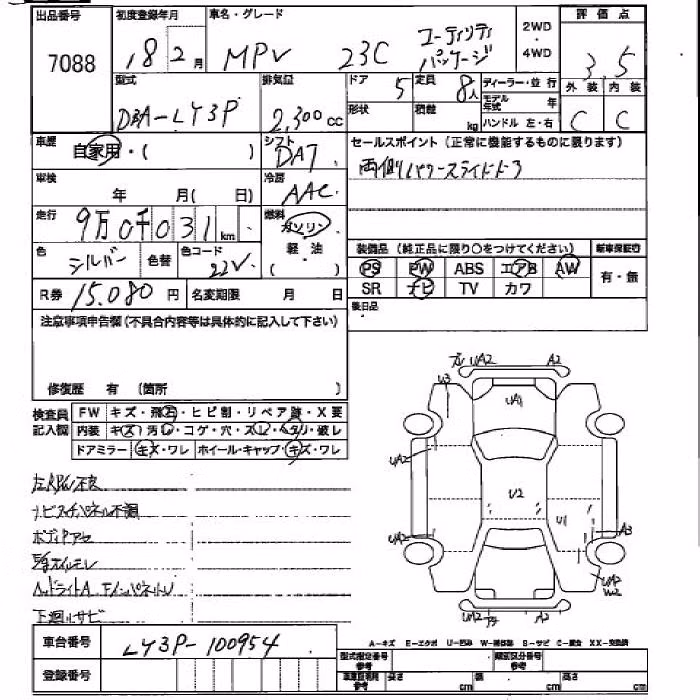 出品番号 初度登録年月 車名・グレード 2WD 評価点
7088 18 2月 MPV 23C コーディリティ パッケージ 4WD 3.5
型式 排気量 ドア 5 定員 8人 ディーラー・並行 外装 内装
DBA-LY3P 2,300cc 形状 積載 kg モデル年式 年 ハンドル 左・右 C C
車歴 自家用・( ) シフト DAT セールスポイント(正常に機能するものに限ります)
車検 年 月( 日) 冷房 AAC 両側パワースライドドア
走行 9万0千031km 燃料 ガソリン 軽油 ( )
色 シルバー 色替 色コード 22V 装備品(純正品に限り○をつけてください) 新車保証書
PS PW ABS エアB AW 有・無
R券 15.080円 名変期限 月 日 SR ナビ TV カワ
注意事項申告欄(不具合内容等は具体的に記入して下さい) 後日品
修復歴 有 (箇所 )
検査員 記入欄 FW キズ・飛石・ヒビ割・リペア跡・X要
内装 キズ・汚レ・コゲ・穴・スレ・ヘタリ・破レ
ドアミラー キズ・ワレ ホイール・キャップ・キズ・ワレ
UA2 A2
U3 UA1
UA2
U2
U1
UA2 A3
UA2 W2
UA2 A2
ナビスチパネル不調
ボディPアセ
下廻リサビ
車台番号 LY3P-100954
登録番号
A-キズ E-エクボ U-凹み W-補修跡 S-サビ C-腐食 XX-交換済
型式指定番号 参考 類別区分番号 参考
長さ cm 幅 cm 高さ cm